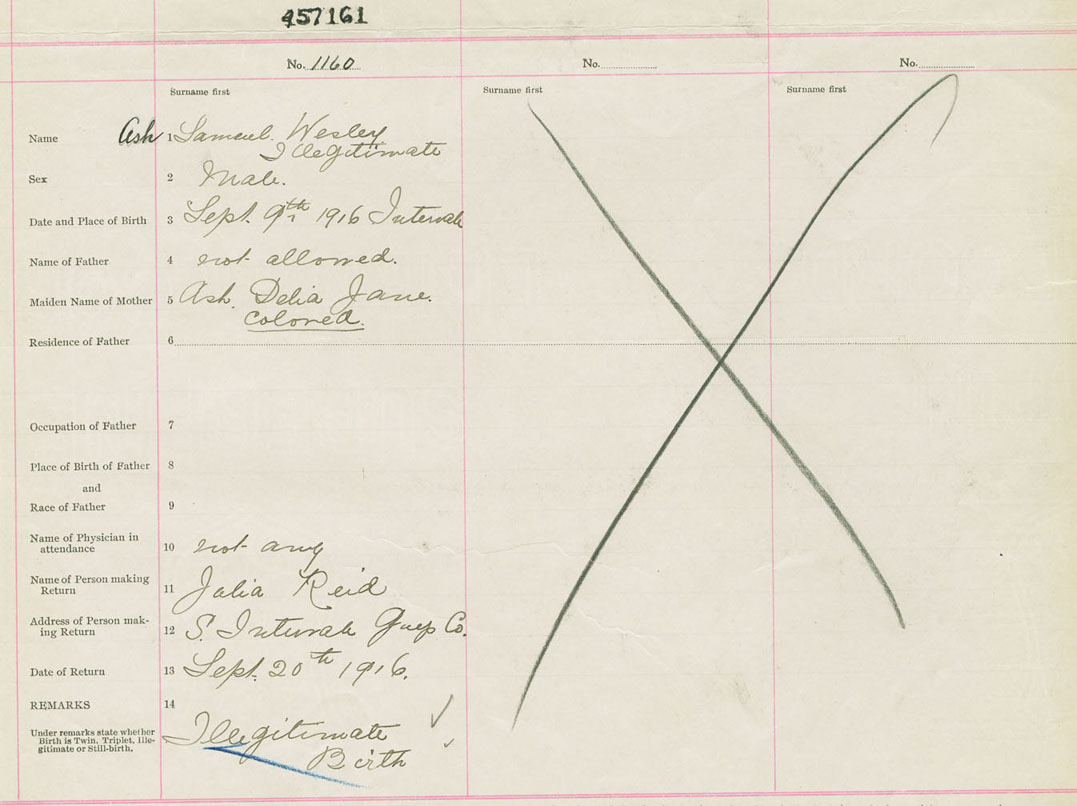 457161
No. 1160 No. No.
Surname first Surname first Surname first
Name Ash 1 Samuel. Wesley
Illegitimate
Sex 2 Male.
Date and Place of Birth 3 Sept. 9th 1916 Intervale
Name of Father 4 not allowed.
Maiden Name of Mother 5 Ash, Delia Jane.
Colored.
Residence of Father 6
Occupation of Father 7
Place of Birth of Father 8
and
Race of Father 9
Name of Physician in
attendance 10 not any
Name of Person making
Return 11 Julia Reid
Address of Person mak-
ing Return 12 S. Intervale Guys Co.
Date of Return 13 Sept. 20th 1916.
REMARKS 14
Under remarks state whether
Birth is Twin, Triplet, Ille-
gitimate or Still-birth.
Illegitimate
Birth